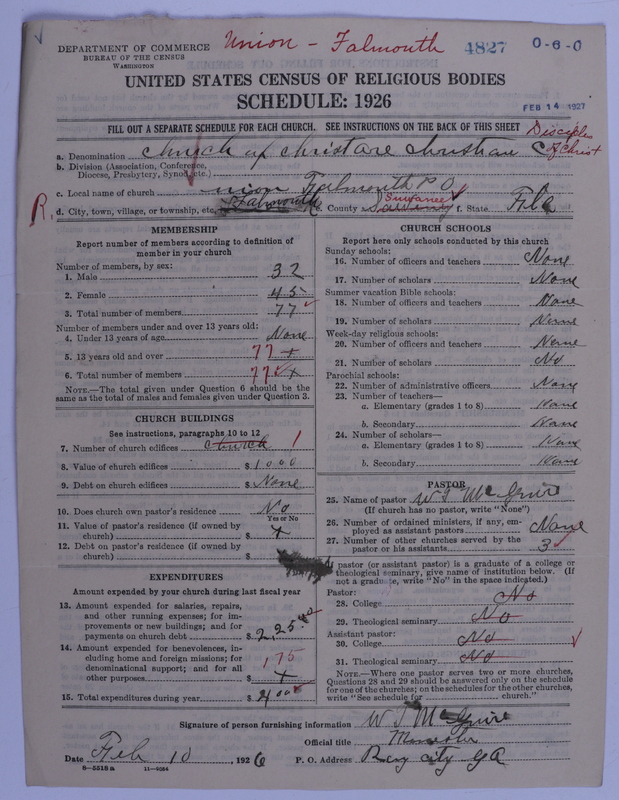 DEPARTMENT OF COMMERCE
BUREAU OF THE CENSUS
WASHINGTON
Union - Falmouth
4827
0-6-0
UNITED STATES CENSUS OF RELIGIOUS BODIES
SCHEDULE: 1926
FEB 14 1927
FILL OUT A SEPARATE SCHEDULE FOR EACH CHURCH. SEE INSTRUCTIONS ON THE BACK OF THIS SHEET
Disciples of Christ
a. Denomination Church of Christ are Christian C
b. Division (Association, Conference, Diocese, Presbytery, Synod, etc.)
c. Local name of church union Falmouth P O
R. d. City, town, village, or township, etc. Falmouth e. County Suwanee f. State Fla
MEMBERSHIP
Report number of members according to definition of member in your church
Number of members, by sex:
1. Male 32
2. Female 45
3. Total number of members 77
Number of members under and over 13 years old:
4. Under 13 years of age None
5. 13 years old and over 77 x
6. Total number of members 77 x
NOTE.—The total given under Question 6 should be the same as the total of males and females given under Question 3.
CHURCH BUILDINGS
See instructions, paragraphs 10 to 12
7. Number of church edifices church 1
8. Value of church edifices $ 1000
9. Debt on church edifices $ None
10. Does church own pastor's residence No
Yes or No
11. Value of pastor's residence (if owned by church) $ x
12. Debt on pastor's residence (if owned by church) $
EXPENDITURES
Amount expended by your church during last fiscal year
13. Amount expended for salaries, repairs, and other running expenses; for improvements or new buildings; and for payments on church debt $ 2,25
14. Amount expended for benevolences, including home and foreign missions; for denominational support; and for all other purposes $ 175 x
15. Total expenditures during year $ 400
CHURCH SCHOOLS
Report here only schools conducted by this church
Sunday schools:
16. Number of officers and teachers None
17. Number of scholars None
Summer vacation Bible schools:
18. Number of officers and teachers None
19. Number of scholars None
Week-day religious schools:
20. Number of officers and teachers None
21. Number of scholars No
Parochial schools:
22. Number of administrative officers None
23. Number of teachers—
a. Elementary (grades 1 to 8) None
b. Secondary None
24. Number of scholars—
a. Elementary (grades 1 to 8) None
b. Secondary None
PASTOR
25. Name of pastor W T McGuire
(If church has no pastor, write "None")
26. Number of ordained ministers, if any, employed as assistant pastors None
27. Number of other churches served by the pastor or his assistants 3
If pastor (or assistant pastor) is a graduate of a college or theological seminary, give name of institution below. (If not a graduate, write "No" in the space indicated.)
Pastor:
28. College No
29. Theological seminary No
Assistant pastor:
30. College No
31. Theological seminary No
NOTE.—Where one pastor serves two or more churches, Questions 28 and 29 should be answered only on the schedule for one of the churches; on the schedules for the other churches, write "See schedule for church."
Signature of person furnishing information W T McGuire
Official title Minister
Date Feb 10, 1926 P. O. Address Ray city GA
8-5518a 11-9024